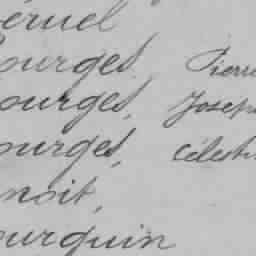 éruel
ourges, Pierre
ourges, Joseph
ourges, Célesti
noit,
ourquin